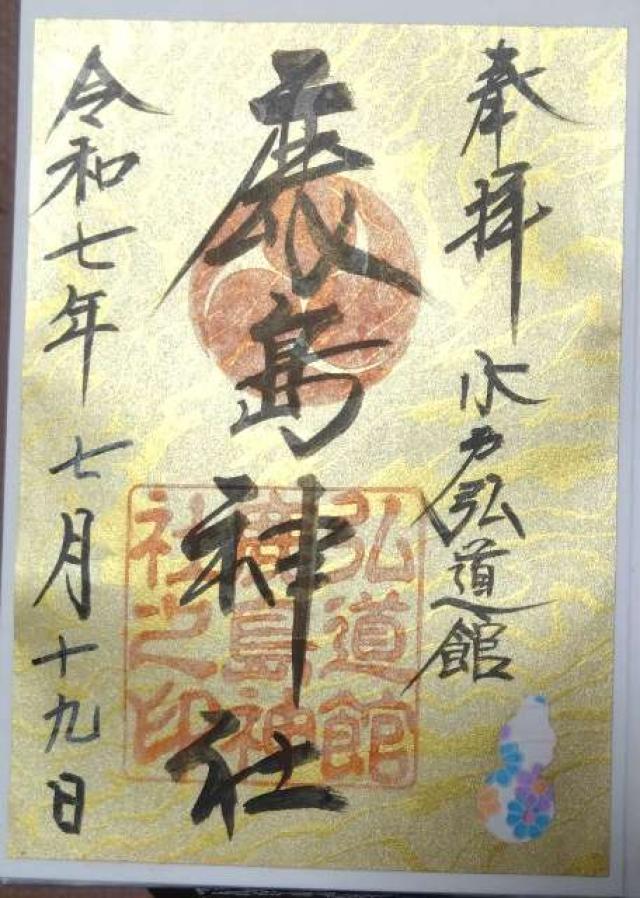 奉拝
水戸弘道館
鹿島神社
弘道館
鹿島神
社之印
令和七年七月十九日